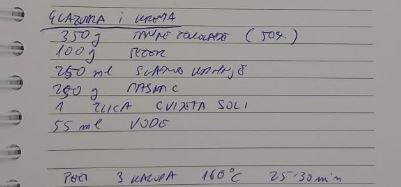 GLAZURA i KREMA
350g TAMNE ČOKOLADE (50%)
100g ŠEĆER
250 ml SLATKO VRHNJE
250 g MASLAC
1 ŽLICA CVIJETA SOLI
55 ml VODE
PEĆI 3 KALUPA 160°C 25-30 min